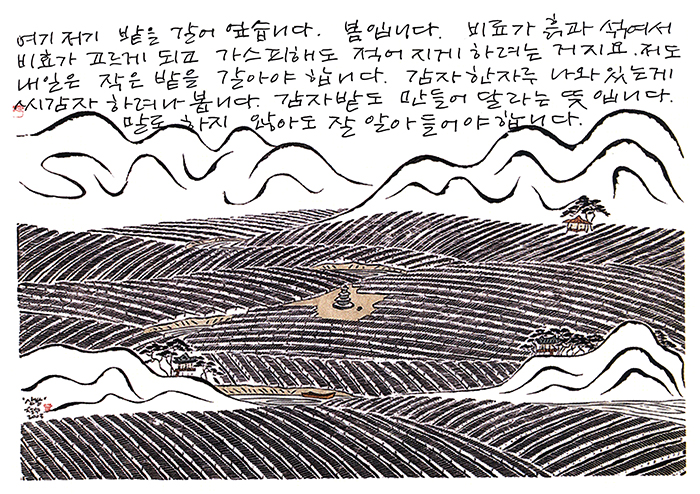 여기 저기 밭을 갈어 엎습니다. 봄입니다. 비료가 흙과 섞여서
비효가 고르게 되고 가스피해도 적어지게 하려는 거지요. 저도
내일은 작은 밭을 갈아야 합니다. 감자 한자루 나와있는게
씨감자 하려나 봅니다. 감자밭도 만들어 달라는 뜻입니다.
말로 하지 않아도 잘 알아들어야 합니다.